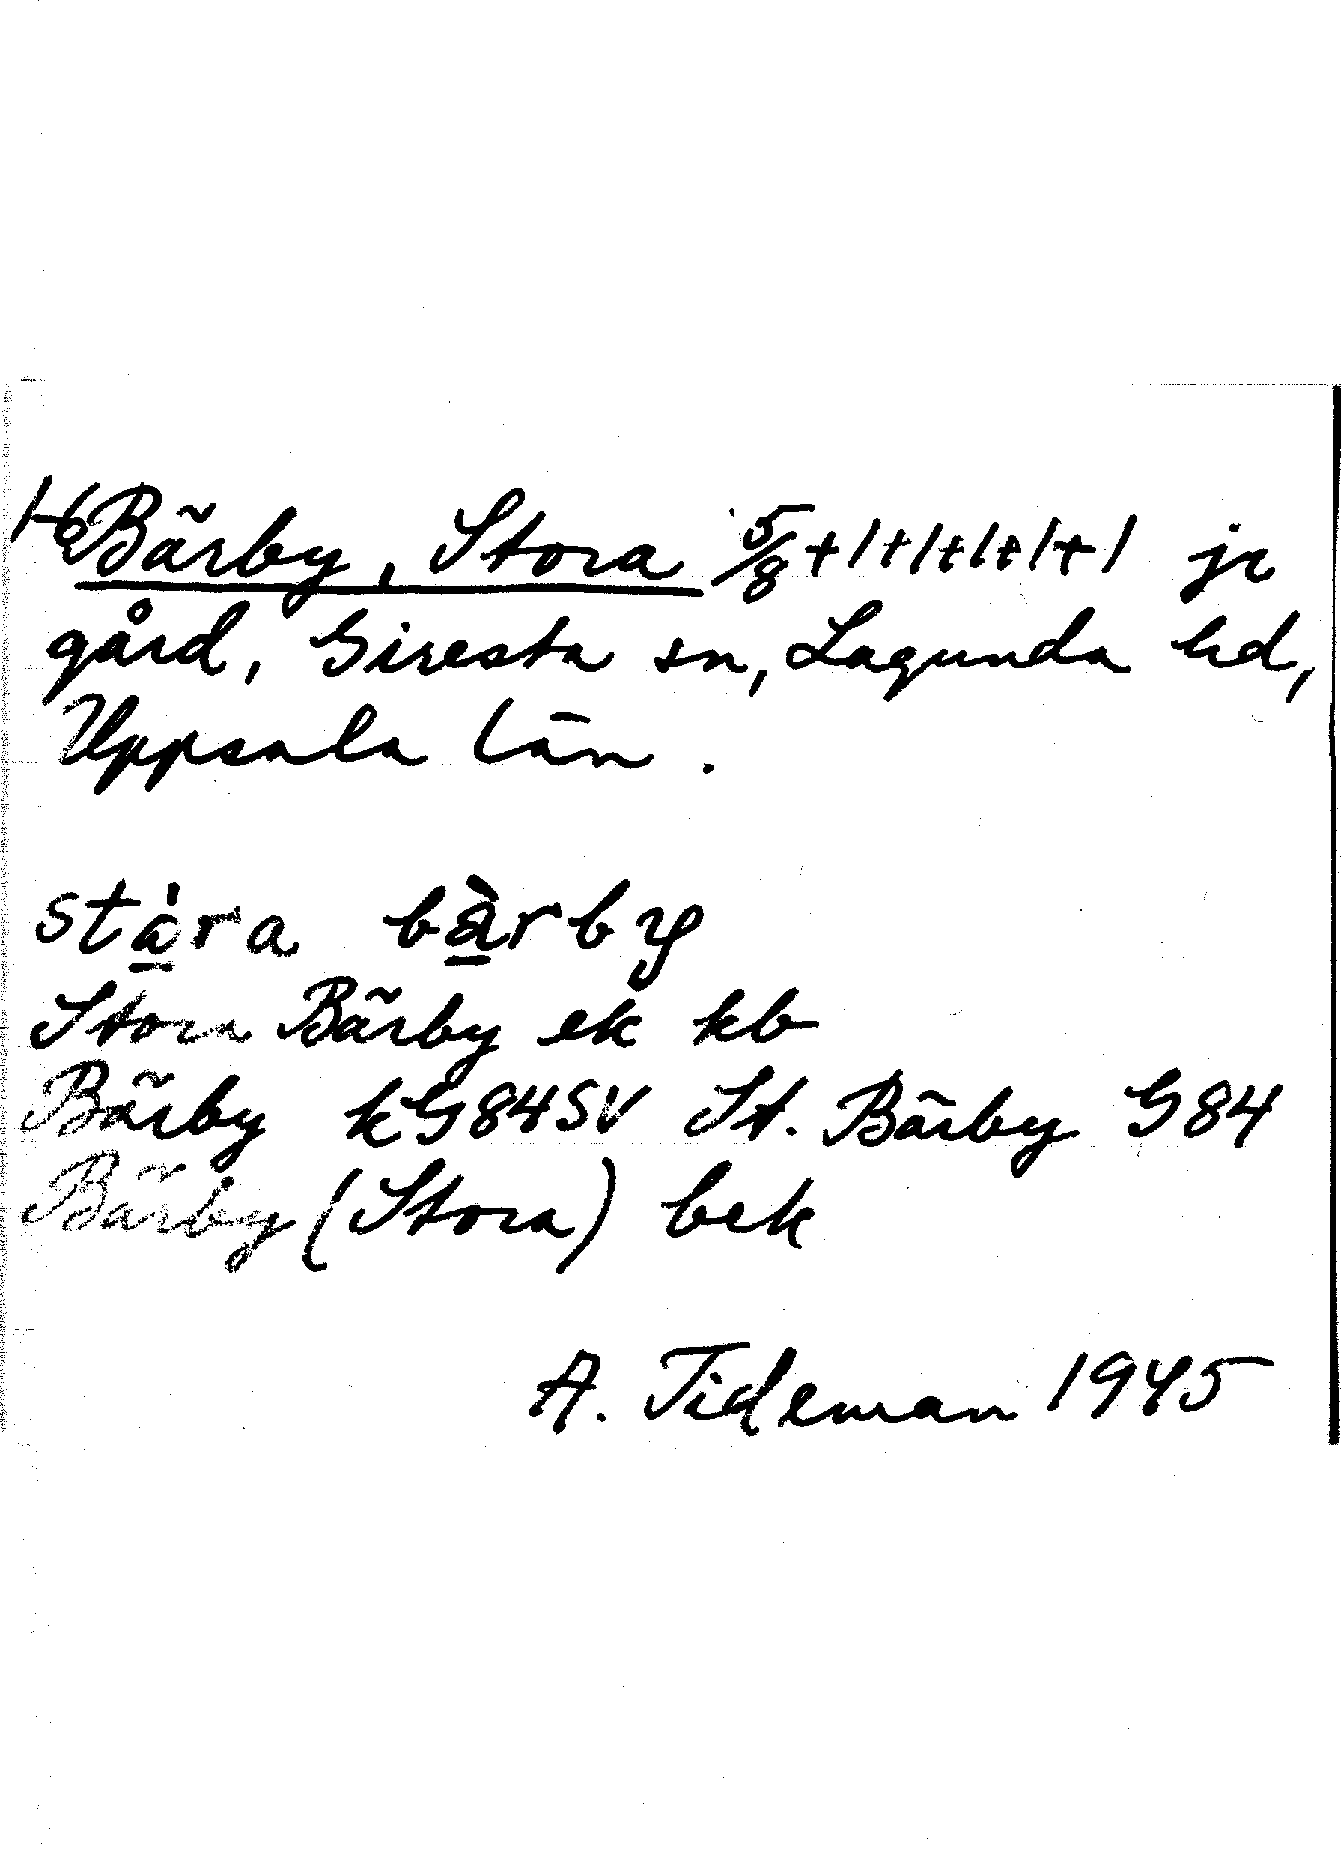 1-6 Bärby, Stora 5/8+1+1+1+1+1+1 jr
gård, Giresta sn, Lagunda hd,
Uppsala län.
stàra bàrby
Stora Bärby ek kb
Bärby kG84SV St. Bärby G84
Bärby (Stora) bek
A. Tideman 1945